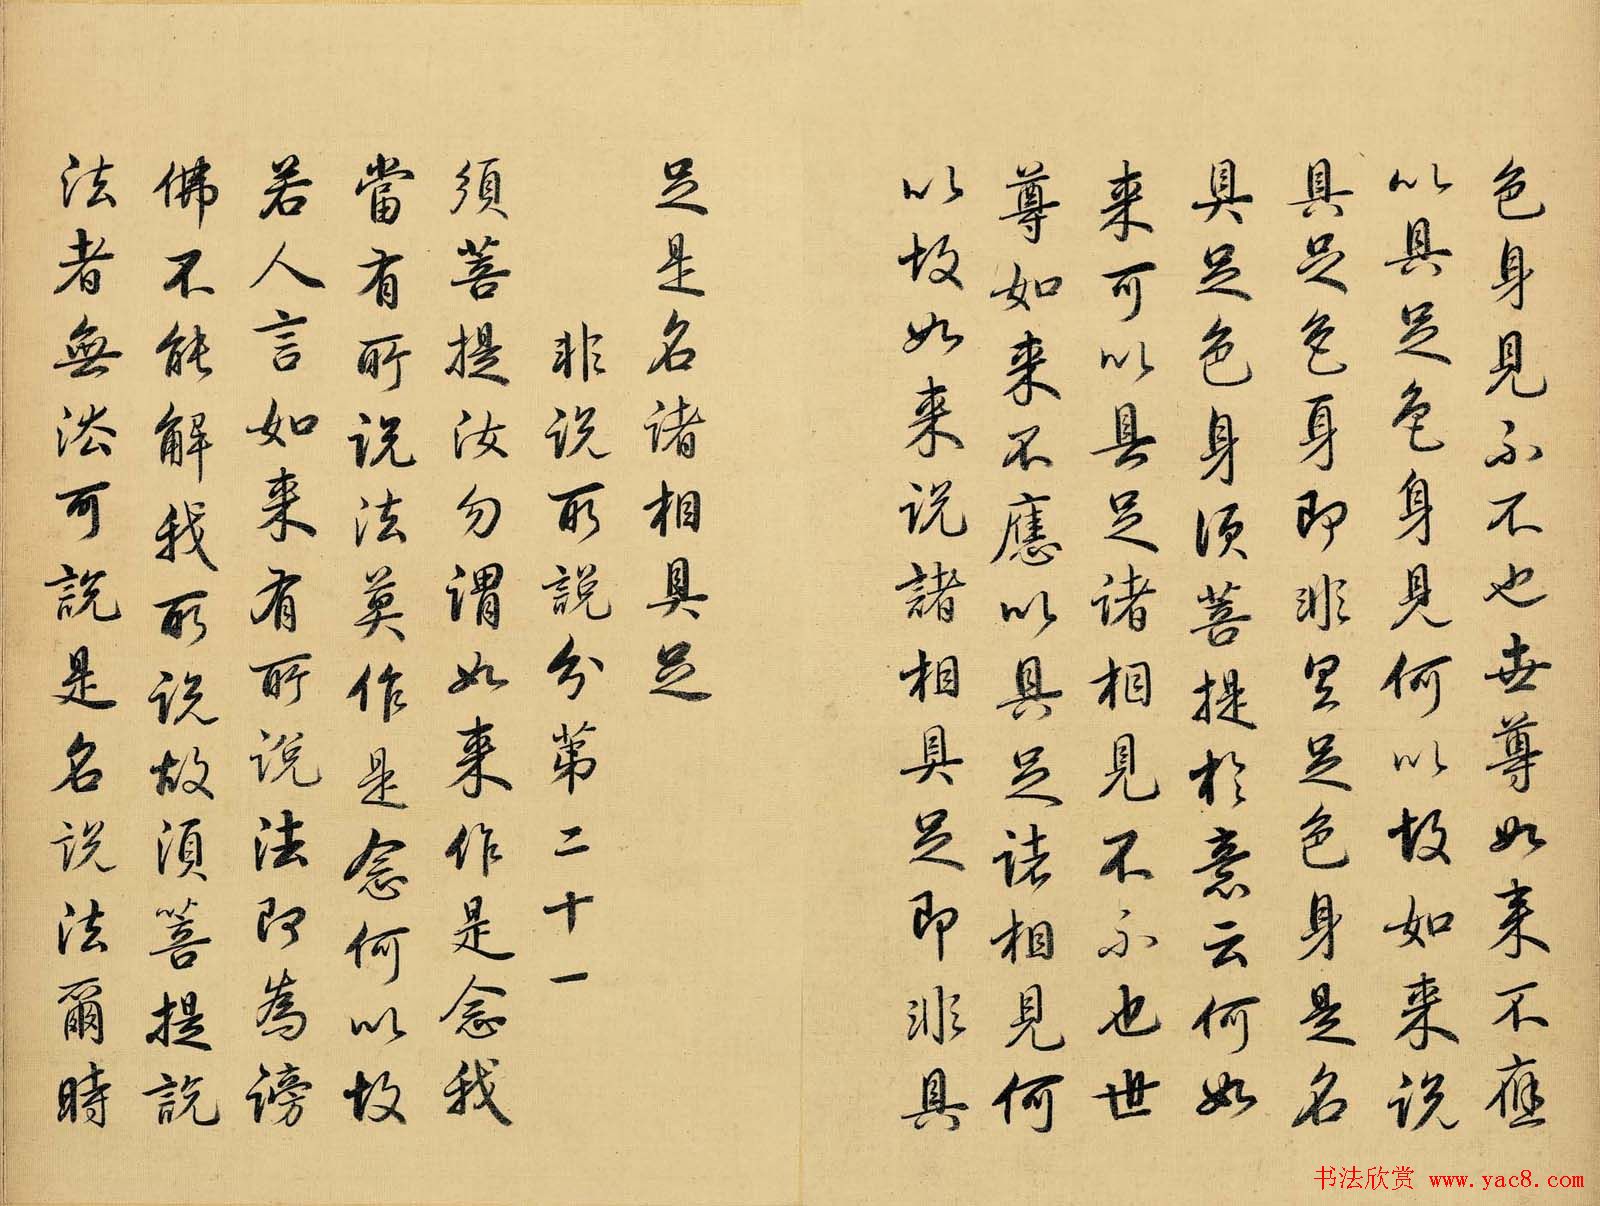 色身見不不也世尊如来不應
以具足色身見何以故如来说
具足色身即非具足色身是名
具足色身須菩提於意云何如
来可以具足诸相見不不也世
尊如来不應以具足诸相見何
以故如来说諸相具足即非具
足是名诸相具足
非说所説分第二十一
須菩提汝勿謂如来作是念我
當有所说法莫作是念何以故
若人言如来有所说法即為謗
佛不能解我所说故須菩提説
法者無法可説是名说法爾時
书法欣赏 www.yac8.com